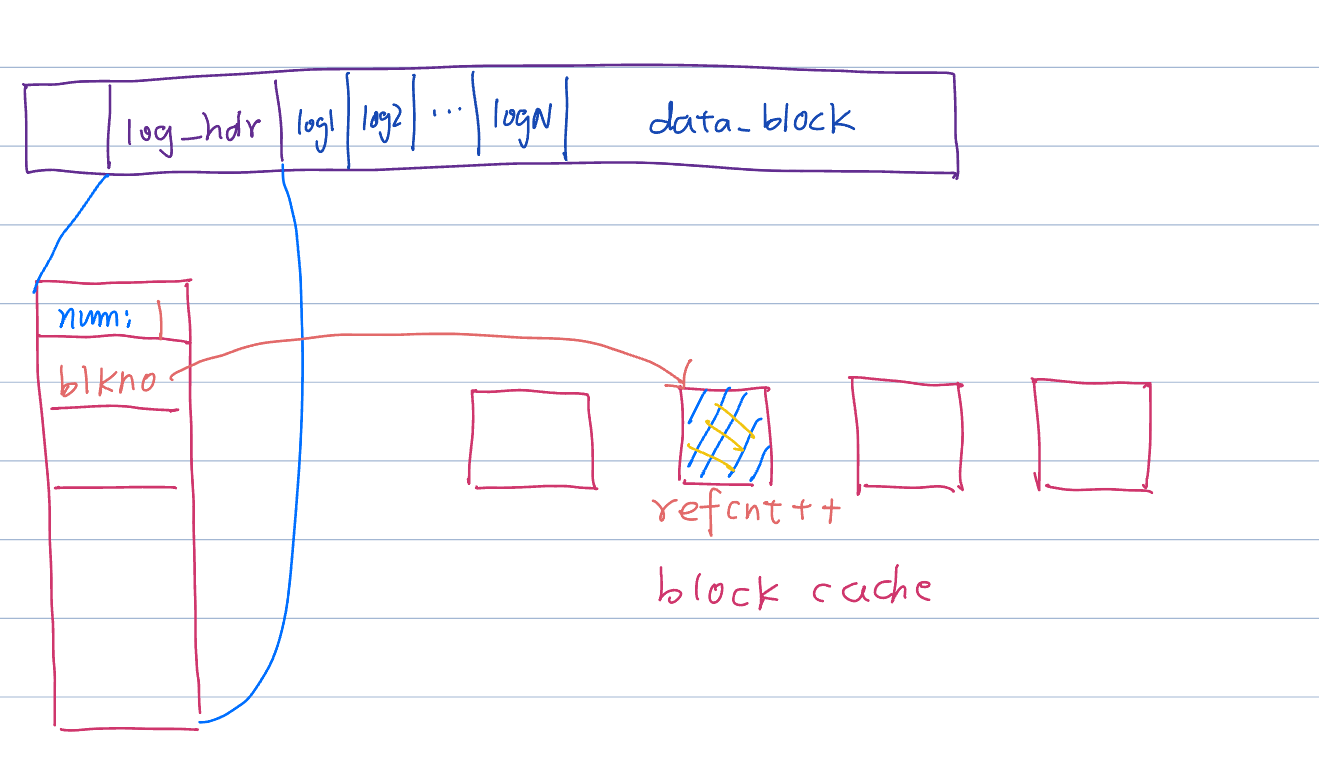 log_hdr log1 log2 ... logN data_block
num: 1
blkno
refcnt++
block cache